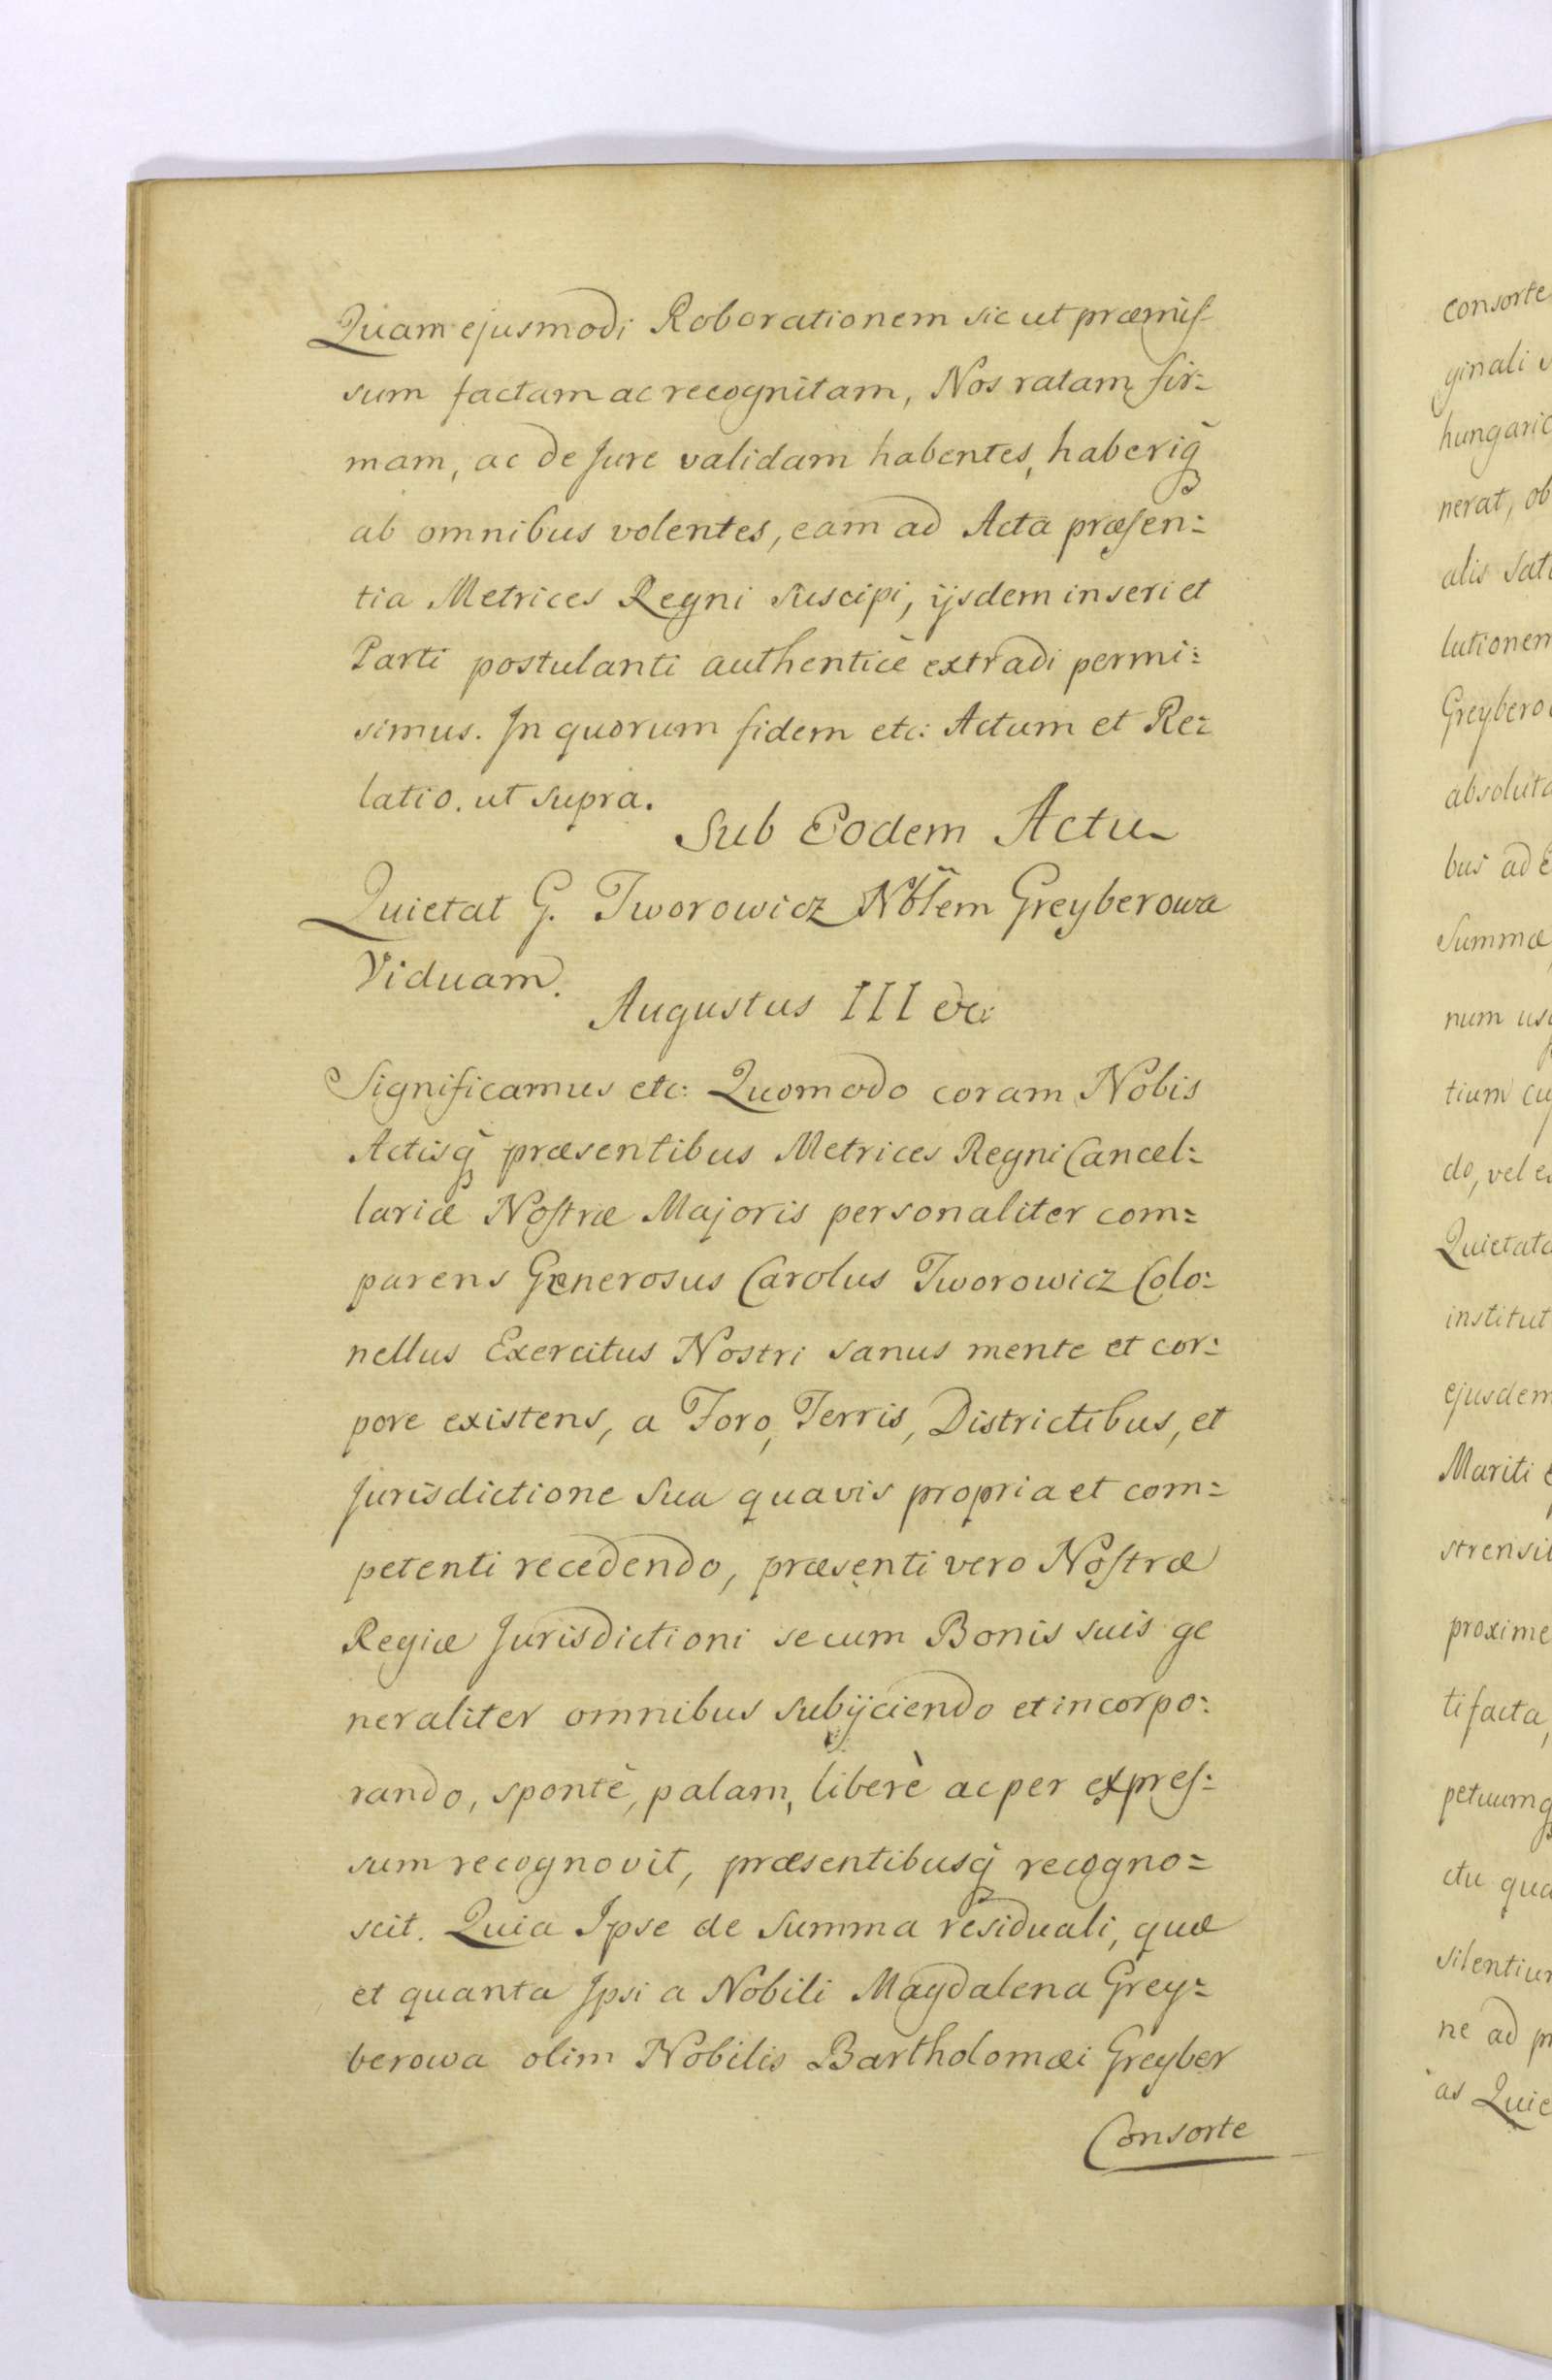 Quam ejusmodi Roborationem sic ut præmiſ-
sum factam ac recognitam, Nos ratam fir=
mam, ac de Jure validam habentes, haberiq̃
ab omnibus volentes, eam ad Acta præſen=
tia Metrices Regni suscipi, ijsdem inseri et
Parti postulanti authenticè extradi permi=
simus. In quorum fidem etc: Actum et Re=
latio. ut supra.
Sub Eodem Actu
Quietat G. Tworowicz Nobĩlem Greyberowa
Viduam.
Augustus III etc:
Significamus etc: Quomodo coram Nobis
Actisq̃ præsentibus Metrices Regni Cancel=
lariæ Noſtræ Majoris personaliter com=
parens Generosus Carolus Tworowicz Colo=
nellus Exercitus Nostri sanus mente et cor=
pore existens, a Foro, Terris, Districtibus, et
Jurisdictione sua quavis propria et com=
petenti recedendo, præsenti vero Noſtræ
Regiæ Jurisdictioni se cum Bonis suis ge
neraliter omnibus subijciendo et incorpo=
rando, spontè, palam, liberè ac per expreſ=
sum recognovit, præsentibusq̃ recogno=
scit. Quia Ipse de summa residuali, quæ
et quanta Ipsi a Nobili Magdalena Grey=
berowa olim Nobilis Bartholomæi Greyber
Consorte
consorte
ginali
hungaric
nerat, ob
alis sat
lutionem
Greybero
absoluta
bus ad
Summæ
num us
tium cu
do, vel e
Quietat
institut
ejusdem
Mariti
strensi
proxime
ti facta,
petuumq
ctu qua
silentiu
ne ad p
as Quie